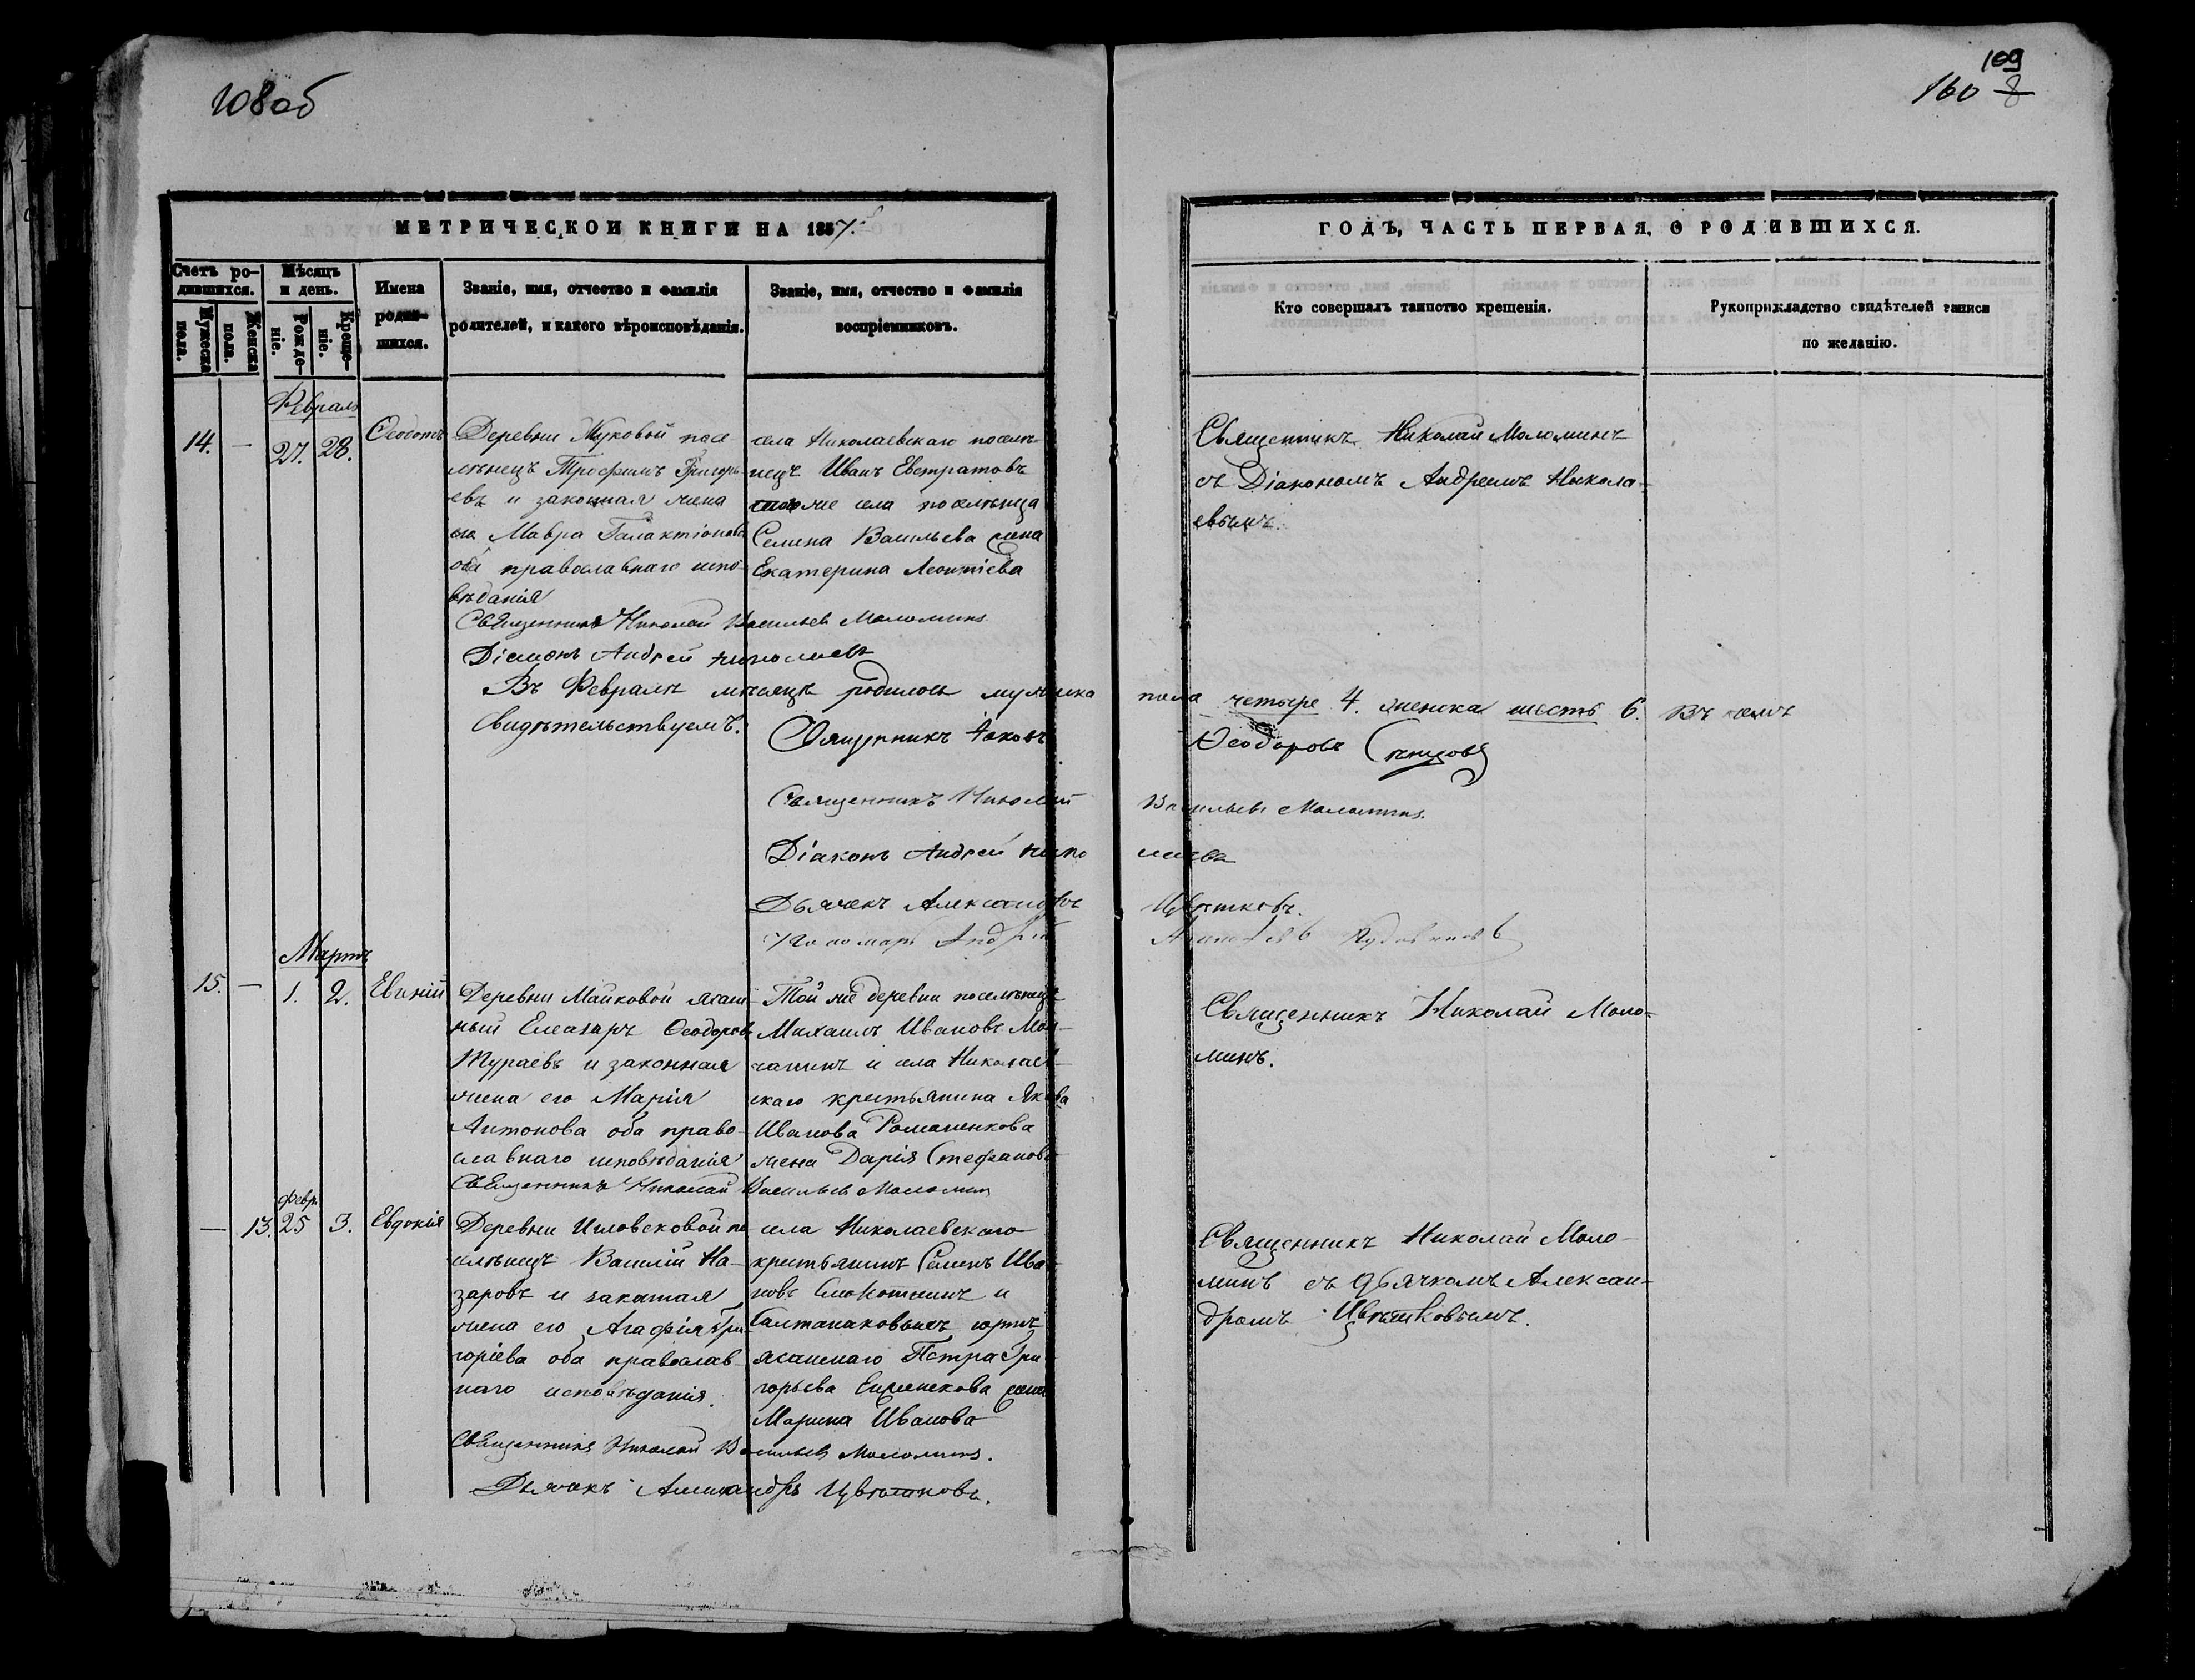 108об
109
160 8
МЕТРИЧЕСКОИ КНИГИ НА 1857.
ГОДЪ, ЧАСТЬ ПЕРВАЯ, О РОДИВШИХСЯ.
Счетъ ро-
дившихся.
Мужеска
пола.
Женска
пола.
Мѣсяцъ
и день.
Рожде-
ніе.
Креще-
ніе.
Имена
родив-
шихся.
Званіе, имя, отчество и фамилія
родителей, и какого вѣроисповѣданія.
Званіе, имя, отчество и фамилія
воспріемниковъ.
Кто совершалъ таинство крещенія.
Рукоприкладство свидѣтелей записи
по желанію.
Февраль
14. — 27. 28. Ѳеодотъ
Деревни Жуковой посе
лѣнецъ Трофимъ Григорь
евъ и законная жена
его Мавра Галактіонова
оба православнаго испо-
вѣданія
села Николаевскаго поселѣ-
нецъ Иванъ Евстратовъ
тогоже села поселѣнца
Семена Васильева жена
Екатерина Леонтіева
Священникъ Николай Моломинъ
съ Діакономъ Андреемъ Никола-
евымъ.
Священникъ Николай Васильевъ Моломинъ
Діаконъ Андрей Николаевъ
Въ Февралѣ мѣсяцѣ родилось мужеска пола четыре 4. женска шесть 6. Въ чемъ
Свидѣтельствуемъ.
Священникъ Іаковъ Ѳеодоровъ
Священникъ Николай Васильевъ Моломинъ.
Діаконъ Андрей Николаевъ
Дьячекъ Александръ Цвѣтковъ.
Пономарь Андрей
Мартъ
15. — 1. 2. Евгеній
Деревни Майковой ясаш-
ный Елеазаръ Ѳеодоровъ
Тураевъ и законная
жена его Марія
Антонова оба право-
славнаго исповѣданія
Той же деревни поселѣнецъ
Михаилъ Ивановъ Мол-
чанинъ и села Николаев-
скаго крестьянина Якова
Иванова Романенкова
жена Дарія Стефанова
Священникъ Николай Моло-
минъ.
Священникъ Николай Васильевъ Моломинъ
Февр.
— 13. 25 3. Евдокія
Деревни Игловсковой по
селѣнецъ Василій На-
заровъ и законная
жена его Агафія Гри-
горіева оба православ-
наго исповѣданія.
села Николаевскаго
крестьянинъ Семенъ Ива-
новъ Смокотнинъ и
Салтанаковыхъ юртъ
ясашнаго Петра Гри
горьева жена
Марина Иванова
Священникъ Николай Моло-
минъ съ дьячкомъ Алексан-
дромъ Цвѣтковымъ.
Священникъ Николай Васильевъ Моломинъ.
Дьячекъ Александръ Цвѣтковъ.